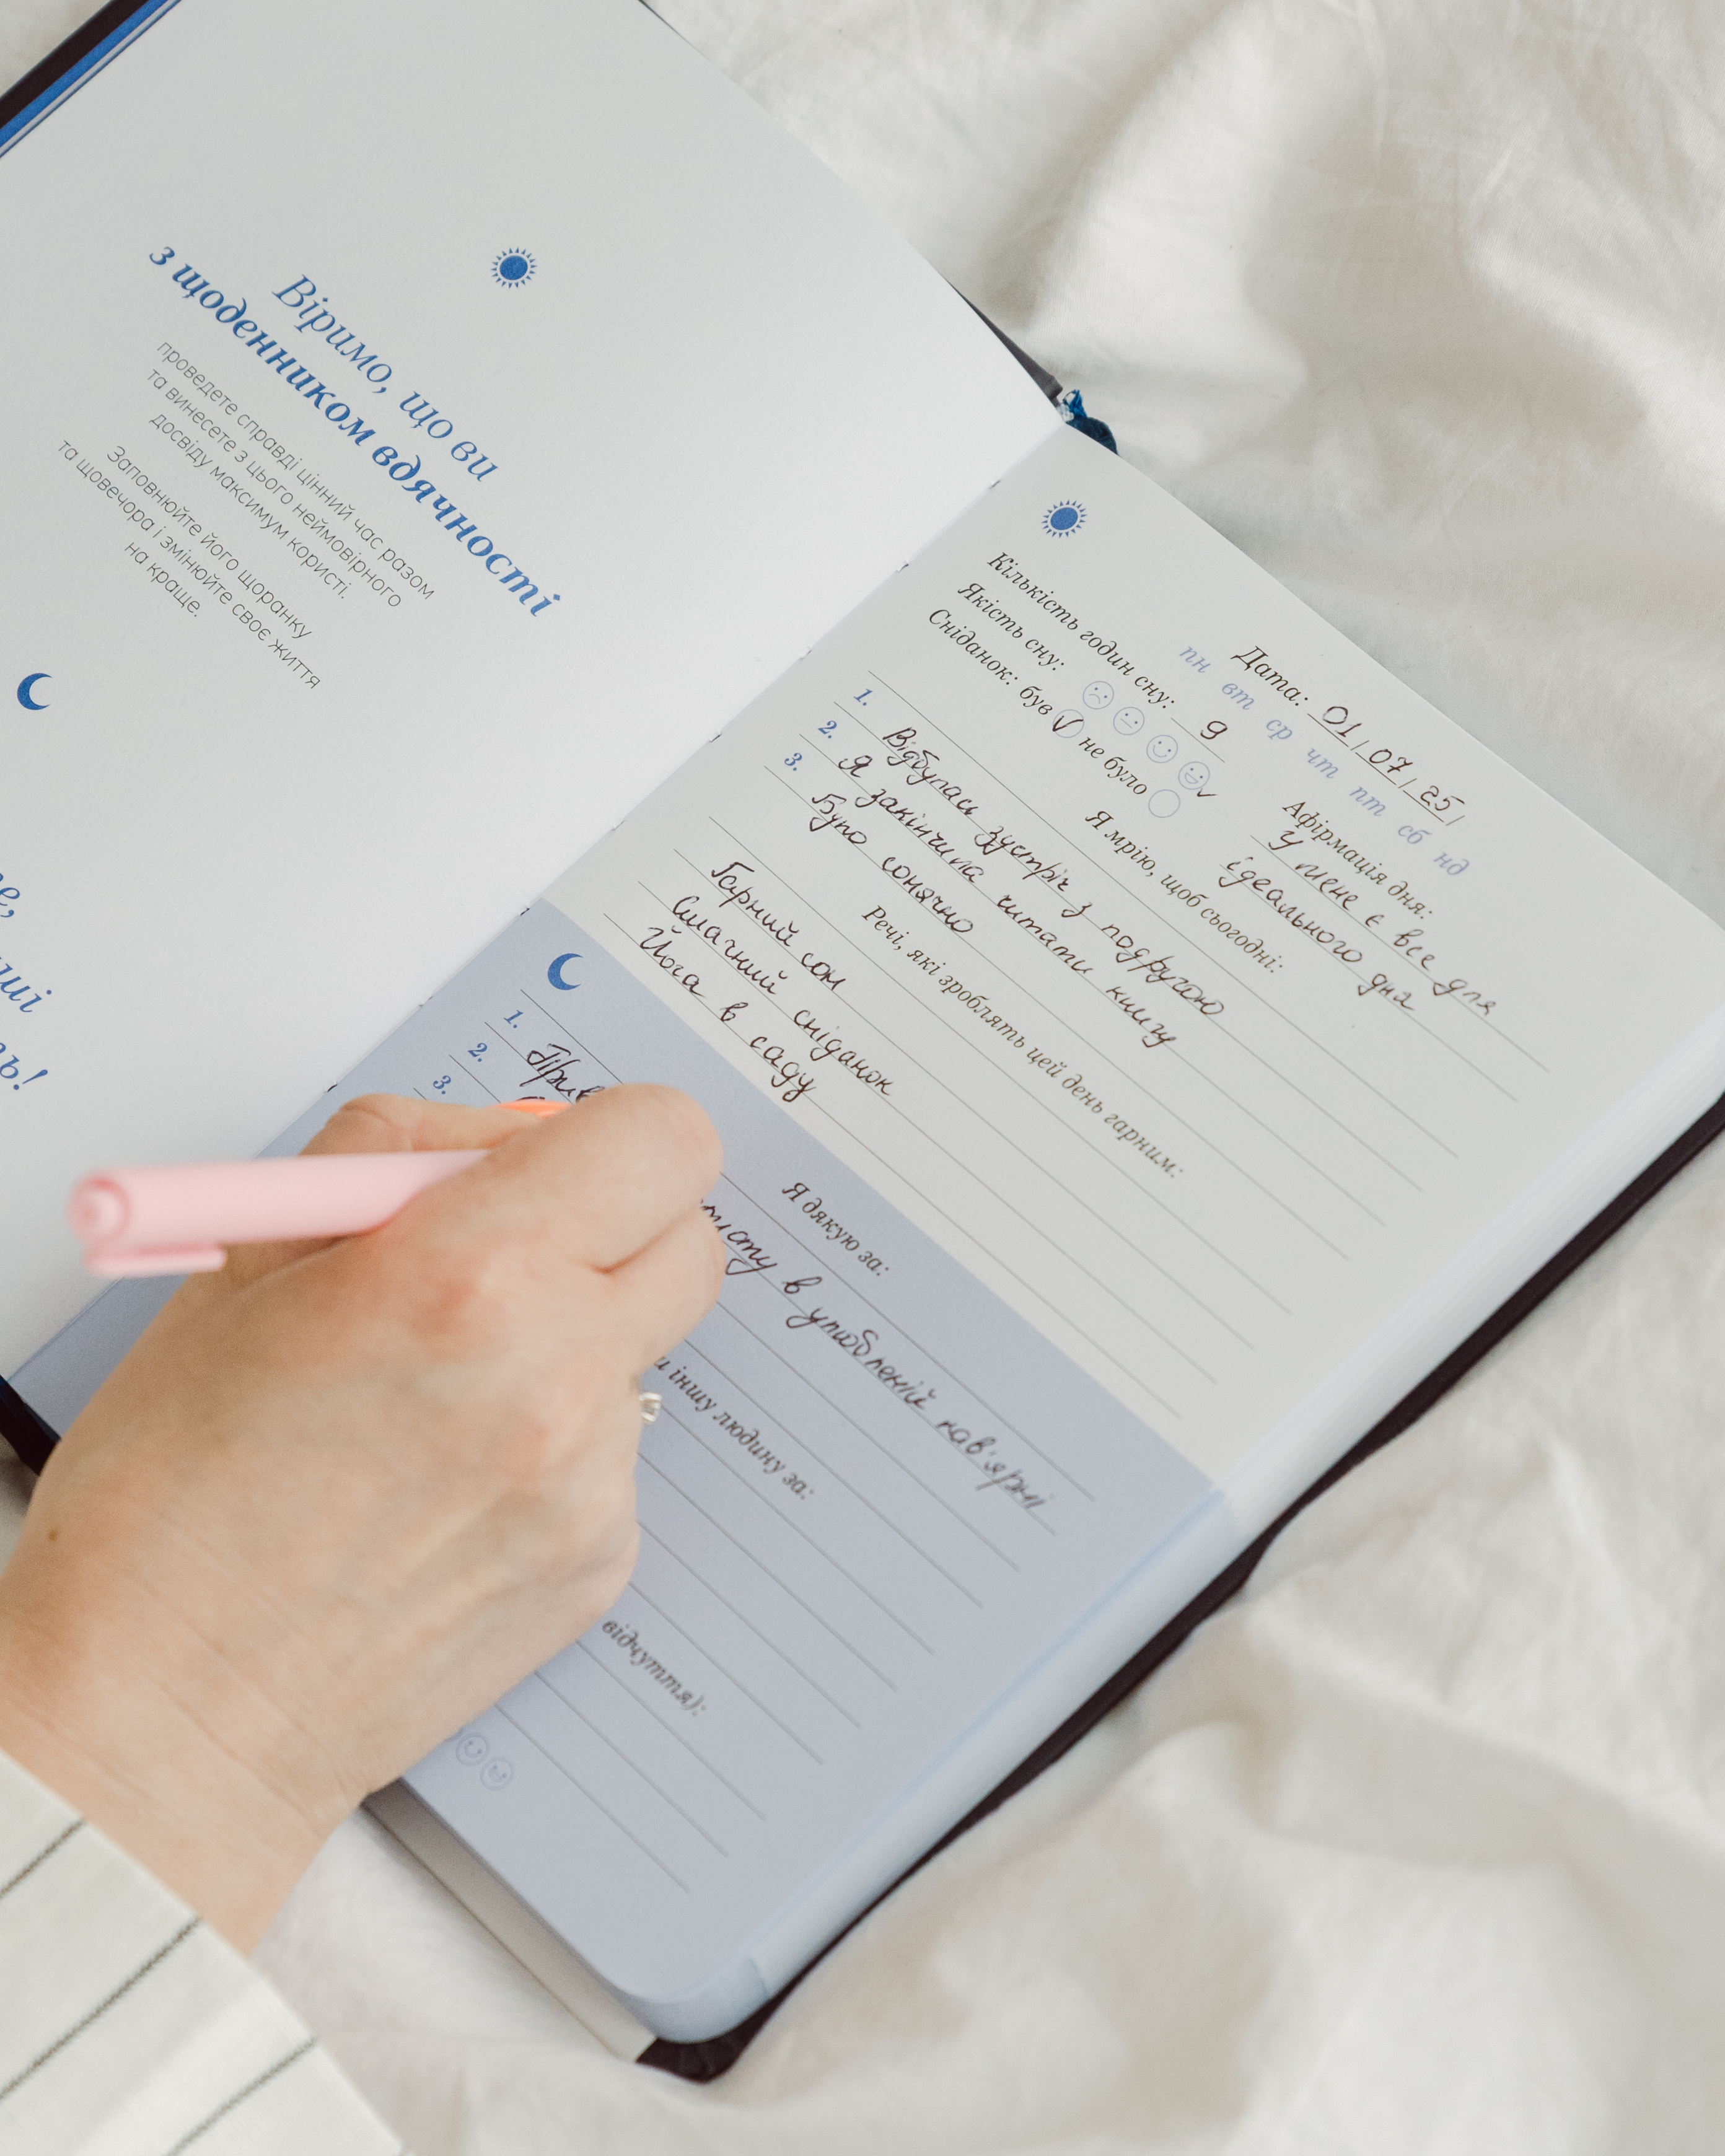 Віримо, що ви
з щоденником вдячності
проведете справді цінний час разом
та винесете з цього неймовірного
досвіду максимум користі.
Заповнюйте його щоранку
та щовечора і змінюйте своє життя
на краще.
Дата: 01/07/25/
пн вт ср чт пт сб нд
Кількість годин сну: 9
Якість сну:
Сніданок: був ✓ не було
Афірмація дня:
У мене є все для
ідеального дня
Я мрію, щоб сьогодні:
1. Відбулась зустріч з подругою
2. Я закінчила читати книгу
3. Було сонячно
Речі, які зроблять цей день гарним:
Гарний сон
Смачний сніданок
Йога в саду
Я дякую за:
1. в улюбленій кав'ярні
2.
3.
іншу людину за:
відчуття):